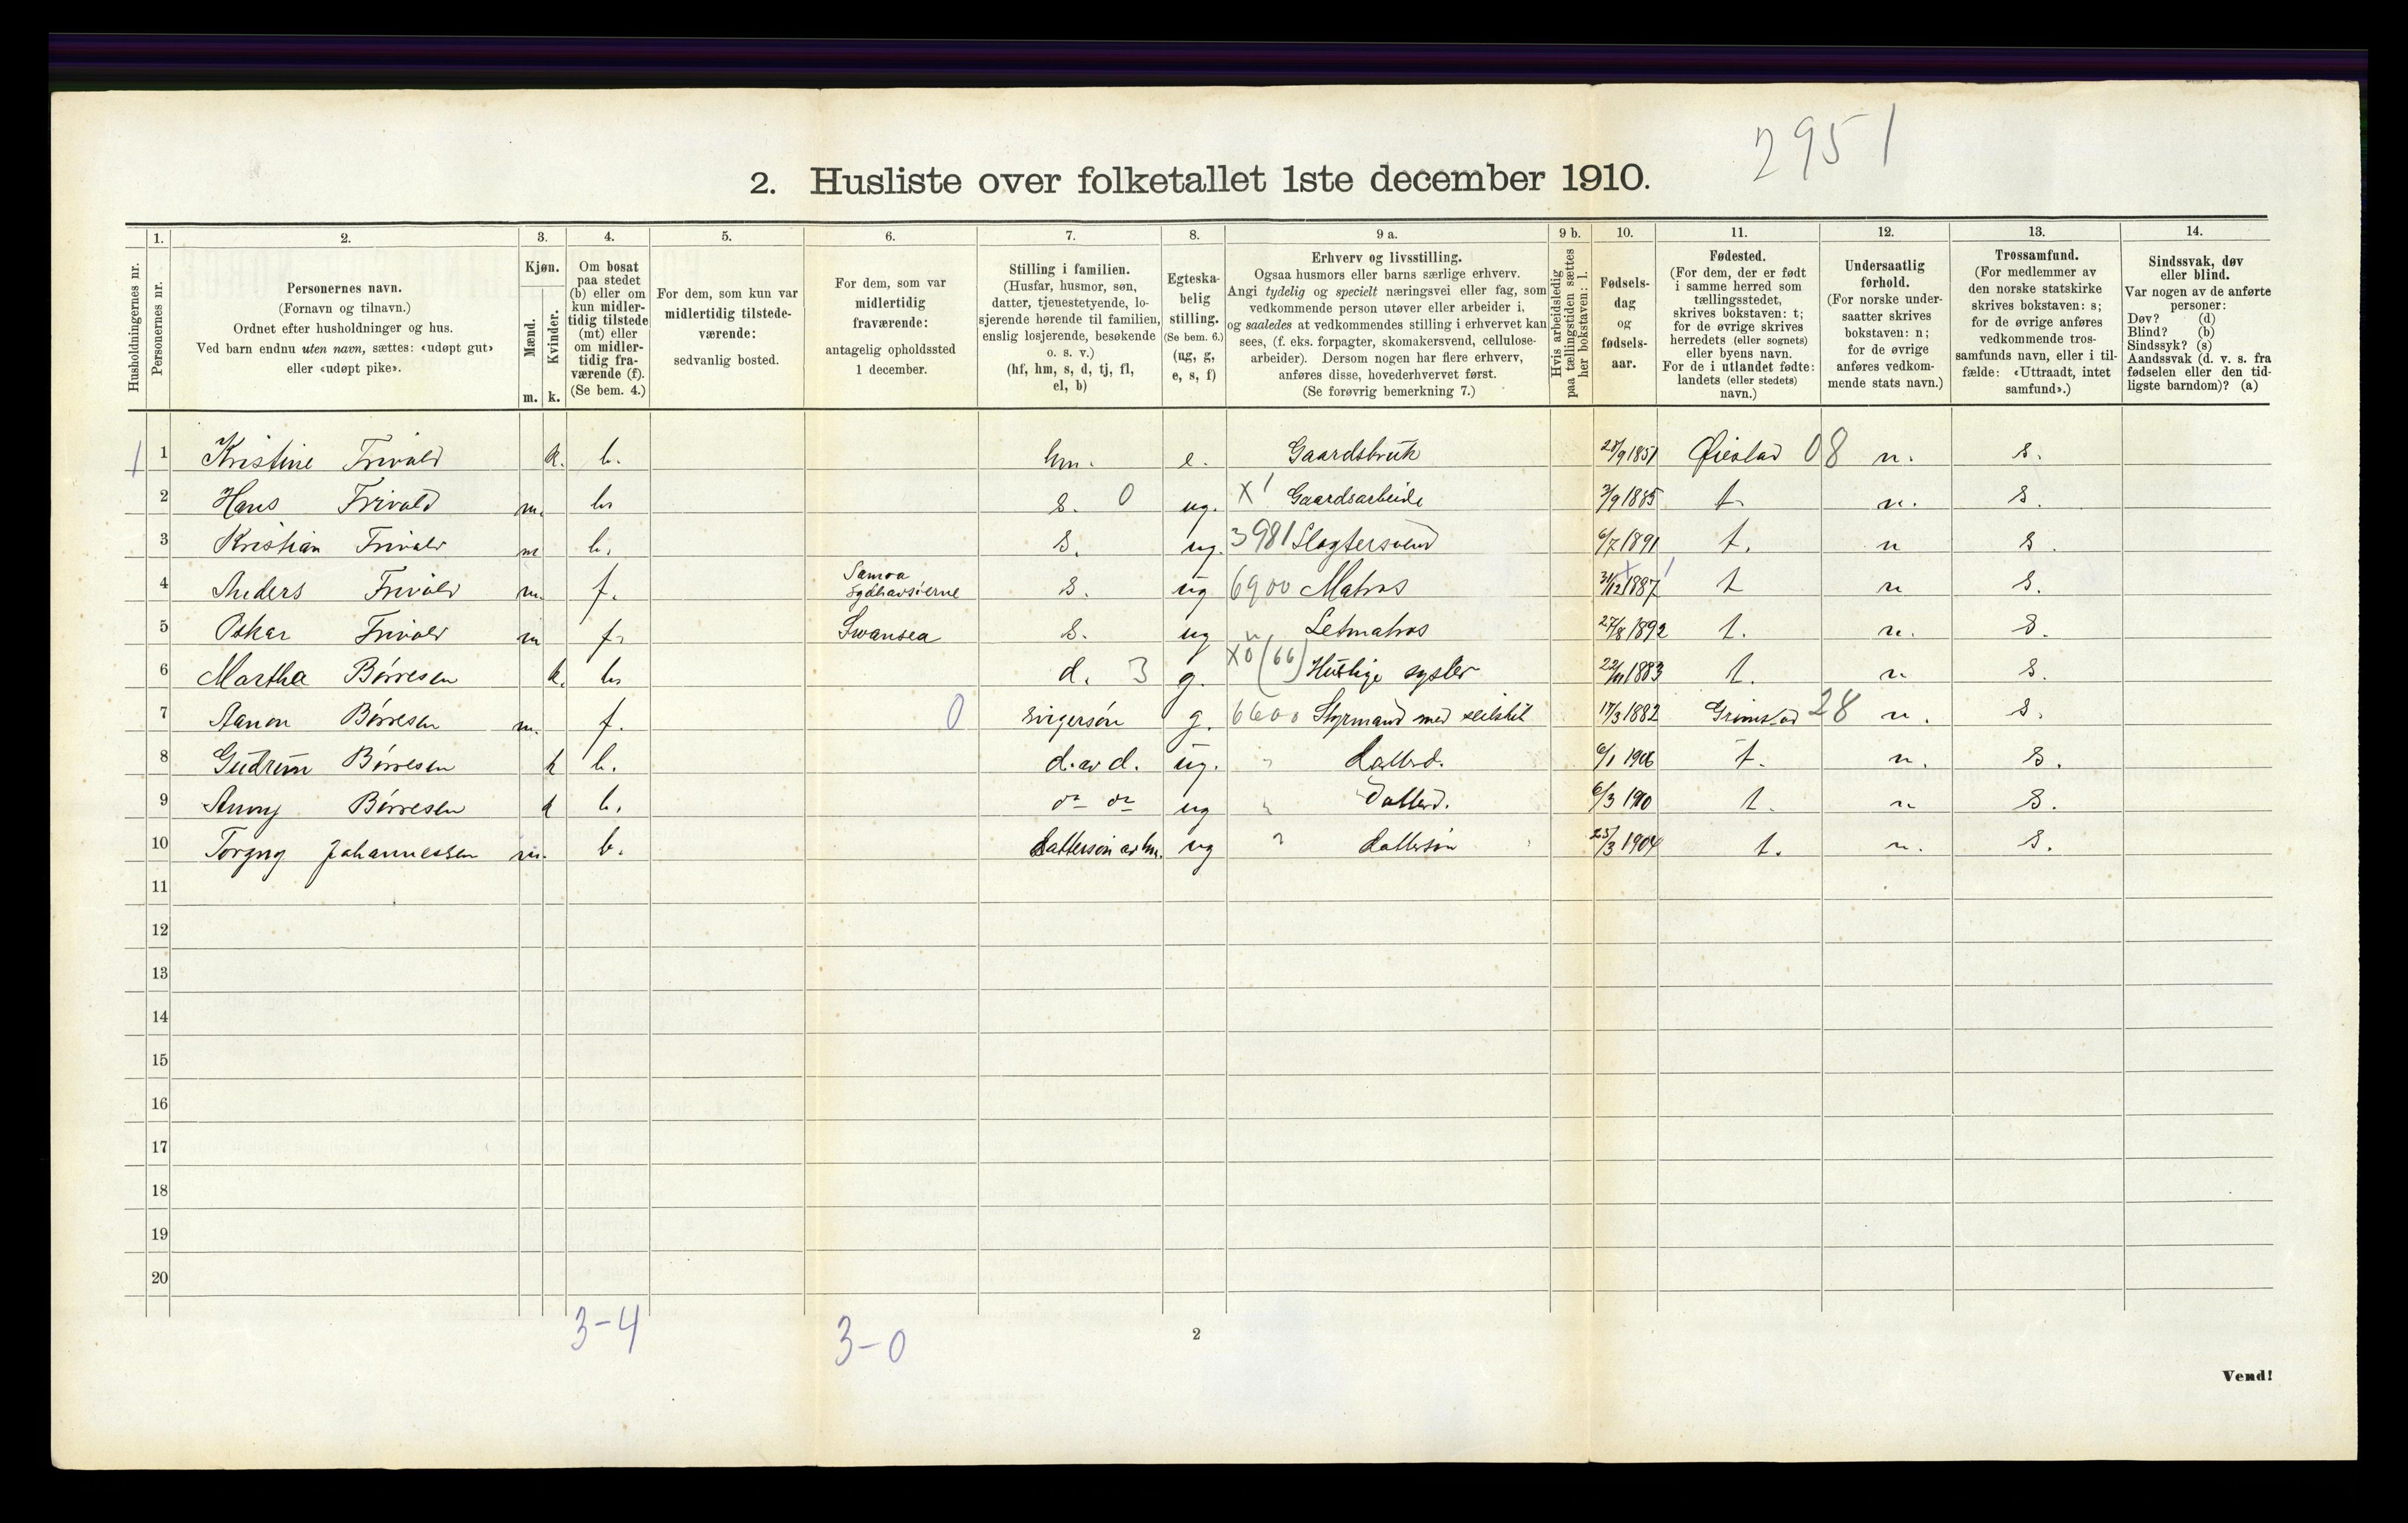 2951
2. Husliste over folketallet 1ste december 1910.
Husholdningernes nr.
1.
Personernes nr.
2.
Personernes navn.
(Fornavn og tilnavn.)
Ordnet efter husholdninger og hus.
Ved barn endnu uten navn, sættes: «udøpt gut»
eller «udøpt pike».
3.
Kjøn.
Mænd.
Kvinder.
m. k.
4.
Om bosat
paa stedet
(b) eller om
kun midler-
tidig tilstede
(mt) eller
om midler-
tidig fra-
værende (f).
(Se bem. 4.)
5.
For dem, som kun var
midlertidig tilstede-
værende:
sedvanlig bosted.
6.
For dem, som var
midlertidig
fraværende:
antagelig opholdssted
1 december.
7.
Stilling i familien.
(Husfar, husmor, søn,
datter, tjenestetyende, lo-
sjerende hørende til familien,
enslig losjerende, besøkende
o. s. v.)
(hf, hm, s, d, tj, fl,
el, b)
8.
Egteska-
belig
stilling.
(Se bem. 6.)
(ug, g,
e, s, f)
9 a.
Erhverv og livsstilling.
Ogsaa husmors eller barns særlige erhverv.
Angi tydelig og specielt næringsvei eller fag, som
vedkommende person utøver eller arbeider i,
og saaledes at vedkommendes stilling i erhvervet kan
sees, (f. eks. forpagter, skomakersvend, cellulose-
arbeider). Dersom nogen har flere erhverv,
anføres disse, hovederhvervet først.
(Se forøvrig bemerkning 7.)
9 b.
Hvis arbeidsledig
paa tællingstiden sættes
her bokstaven: l.
10.
Fødsels-
dag
og
fødsels-
aar.
11.
Fødested.
(For dem, der er født
i samme herred som
tællingsstedet,
skrives bokstaven: t;
for de øvrige skrives
herredets (eller sognets)
eller byens navn.
For de i utlandet fødte:
landets (eller stedets)
navn.)
12.
Undersaatlig
forhold.
(For norske under-
saatter skrives
bokstaven: n;
for de øvrige
anføres vedkom-
mende stats navn.)
13.
Trossamfund.
(For medlemmer av
den norske statskirke
skrives bokstaven: s;
for de øvrige anføres
vedkommende tros-
samfunds navn, eller i til-
fælde: «Uttraadt, intet
samfund».)
14.
Sindssvak, døv
eller blind.
Var nogen av de anførte
personer:
Døv? (d)
Blind? (b)
Sindssyk? (s)
Aandssvak (d. v. s. fra
fødselen eller den tid-
ligste barndom)? (a)
1 1 Kristine Frivold k. b. hm. e. Gaardsbruk 28/9 1851 Øiestad 08 n. s.
2 Hans Frivold m. b. s. 0 ug. X 1 Gaardsarbeide 3/9 1885 t. n. s.
3 Kristian Frivold m b. s. ug. 3981 Slagtersvend 6/7 1891 t. n s.
4 Anders Frivold m. f. Samoa Sydhavsøerne s. ug 6900 Matros 31/12 1887 t n s.
5 Oskar Frivold m f. Swansea s. ug " Letmatros 27/8 1892 t. n. s.
6 Martha Børresen k. b. d. 3 g. X0 (66) Huslige sysler 22/11 1883 t. n s.
7 Aanon Børresen m. f. 0 svigersøn g. 6600 Styrmand med seilskib 17/3 1882 Grimstad 28 n. s.
8 Gudrun Børresen k b. d. av d. ug. " datterd. 6/1 1906 t. n. s.
9 Anny Børresen k b. do do ug " datterd. 6/3 1910 t. n s.
10 Torgny Johannessen m. b. dattersøn av hm. ug " dattersøn 25/3 1904 t. n. s.
11
12
13
14
15
16
17
18
19
20
3-4
3-0
2
Vend!